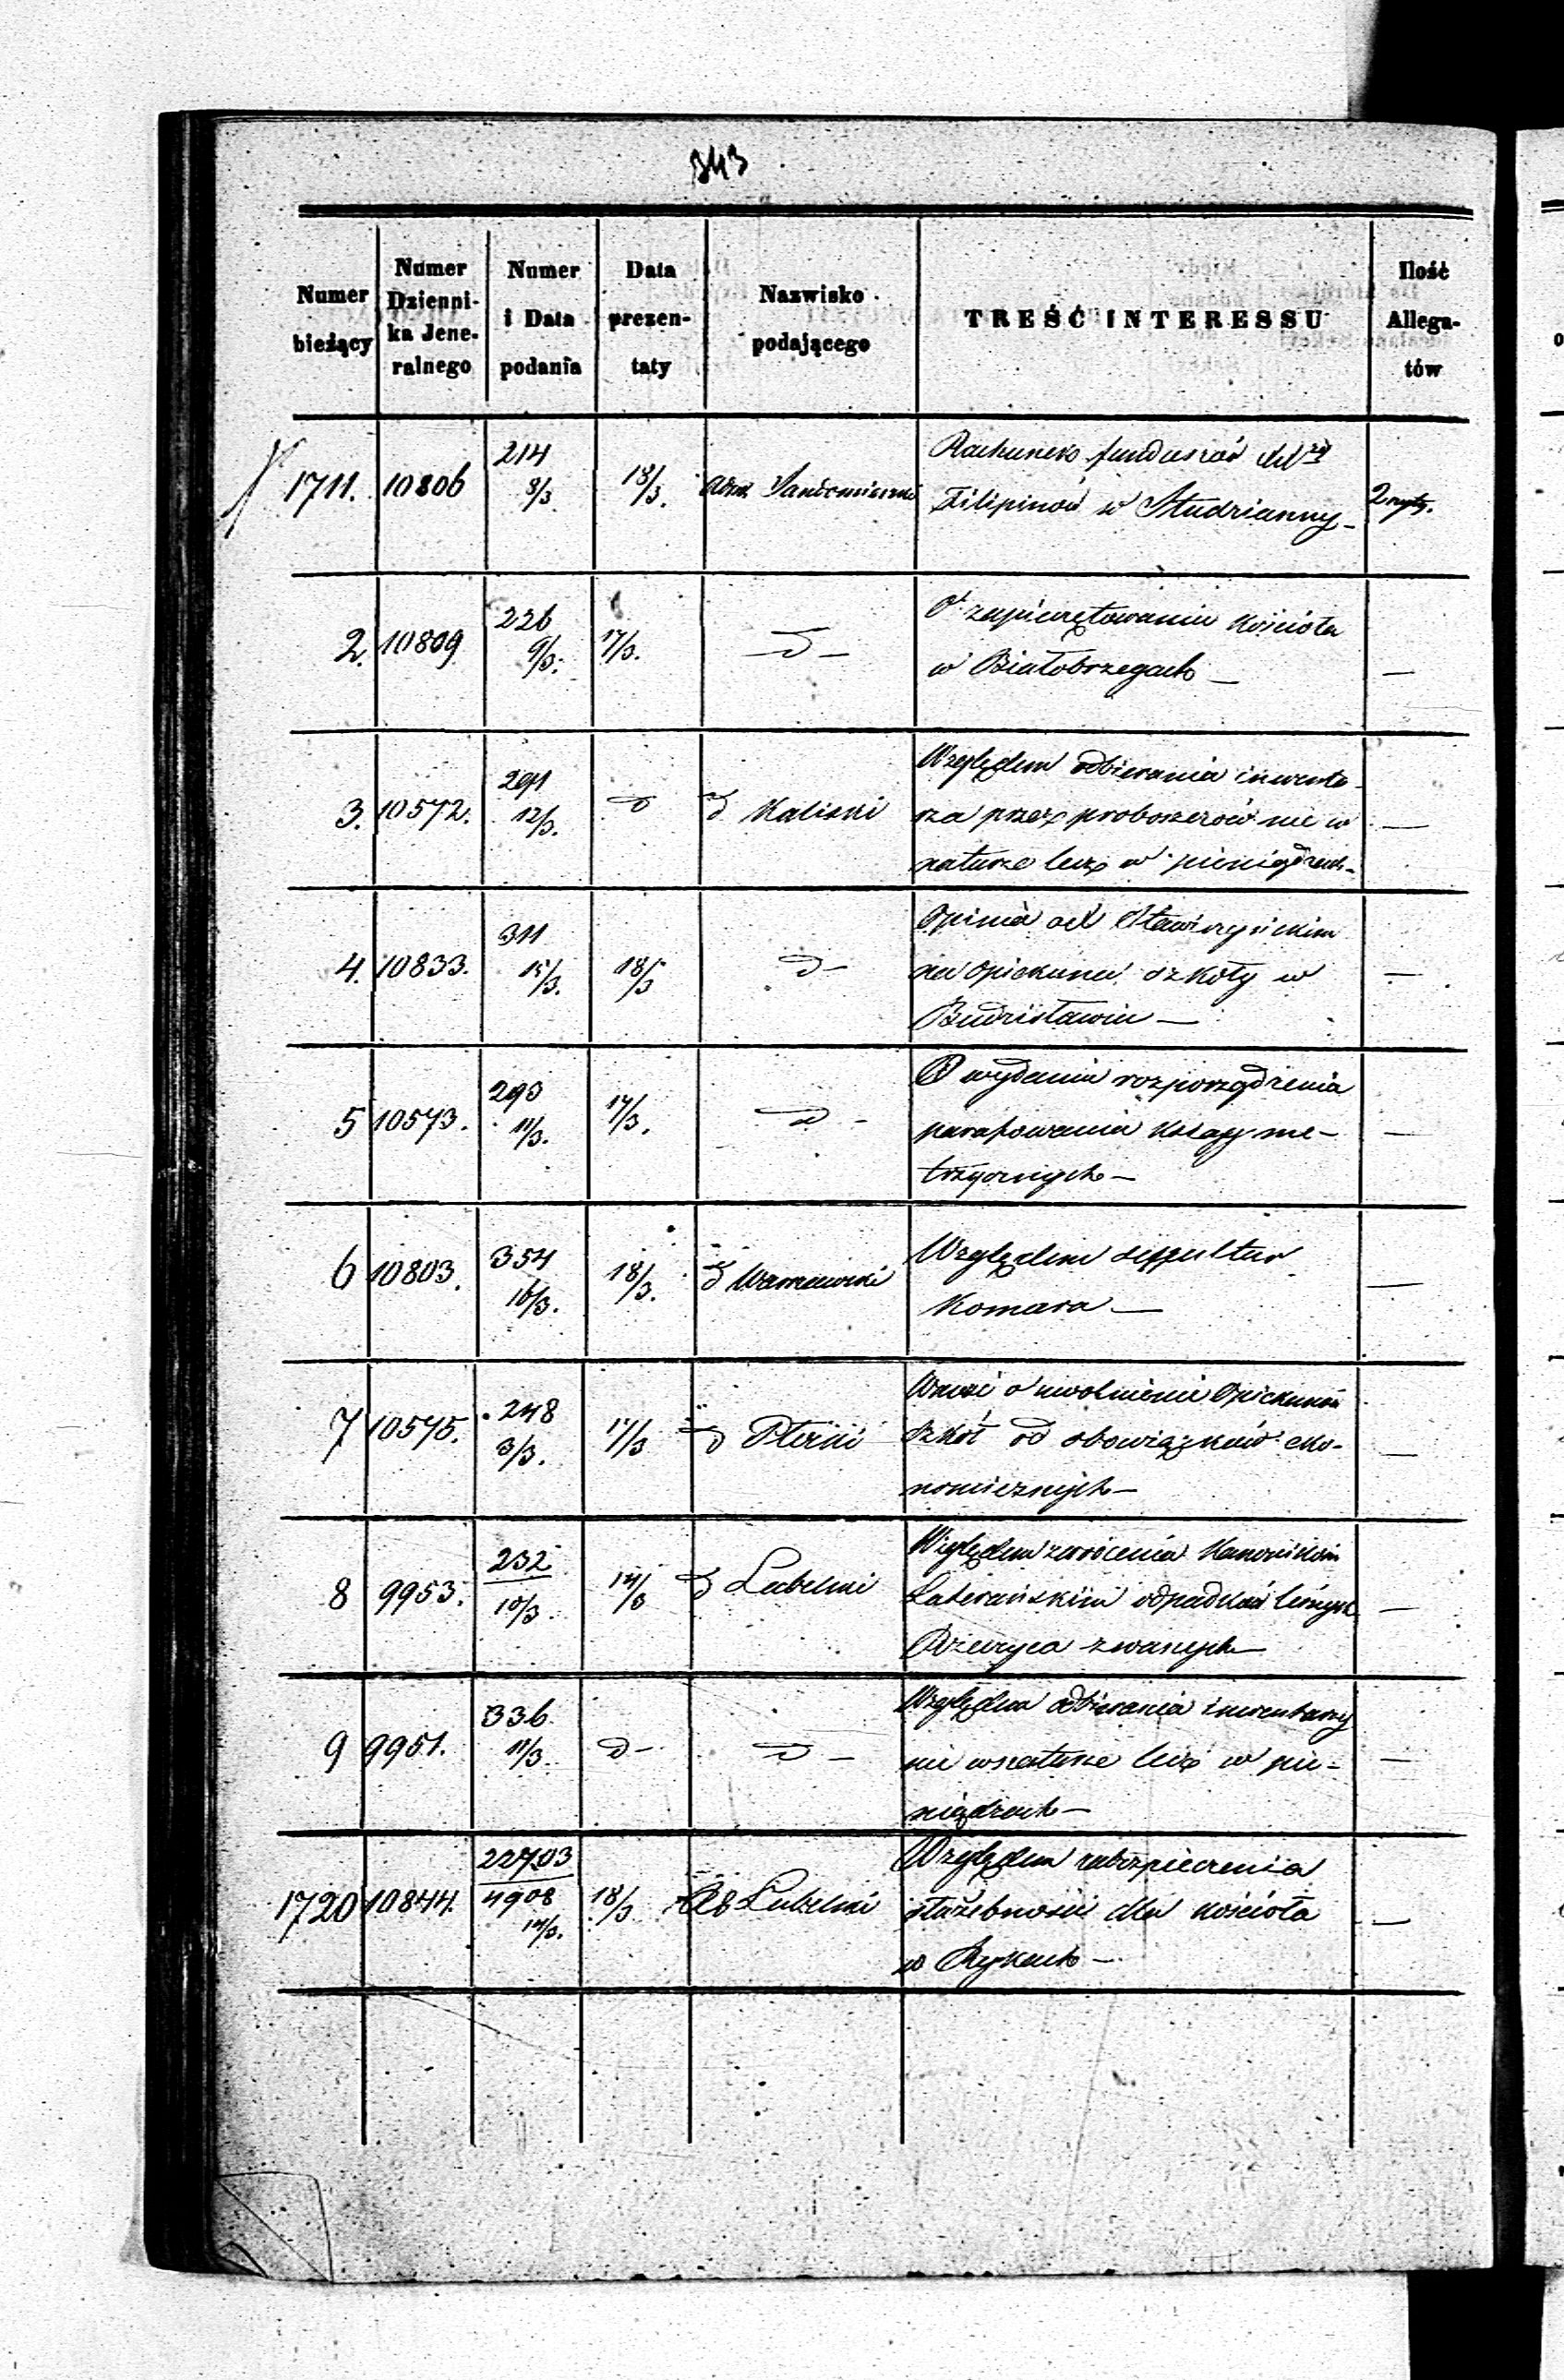 343
Numer bieżący | Numer Dzienni-ka Jene-ralnego | Numer i Data podania | Data prezen-taty | Nazwisko podającego | TREŚĆ INTERESSU | Ilość Allega-tów
1711. | 10806 | 214 8/3. | 18/3. | Sandomierski | Rachunek funduszów
Filipinów w Studzianny- | 2
2. | 10809 | 226 9/3. | 17/3. | —d— | O zapieczętowaniu Kościoła
w Białobrzegach — | —
3. | 10572. | 291 12/3. | d | d Kaliski | Względem odbierania inwenta-
rza przez proboszczów nie w
naturze lecz w pieniądzach- | —
4. | 10833. | 311 15/3. | 18/3 | d— | Opinia
na Opiekuna szkoły w
Budzisławiu — | —
5 | 10573. | 293 11/3. | 17/3. | d - | O wydania rozporządzenia
parafowania Ksiąg me-
trycznych — | —
6 | 10803. | 354 16/3. | 18/3. | d Warszawski | Względem seppultur
Komara — | —
7 | 10575. | 248 3/3. | 17/3 | d Płocki | o uwolnienie Opiekunów
Szkół od obowiązków eko-
nomicznych — | —
8 | 9953. | 232 10/3. | 14/3 | d Lubelski | Względem zwrócenia Kanonikom
Laterańskim odpadków leśnych
zwanych — | —
9 | 9951. | 336. 11/3. | d— | d — | Względem odbierania inwentarzy
nie w naturze lecz w pie-
niądzach — | —
1720 | 10844. | 22703 4908 14/3. | 18/3 | Lubelski | Względem zabezpieczenia
służebności dla Kościoła
w Rykach — | —